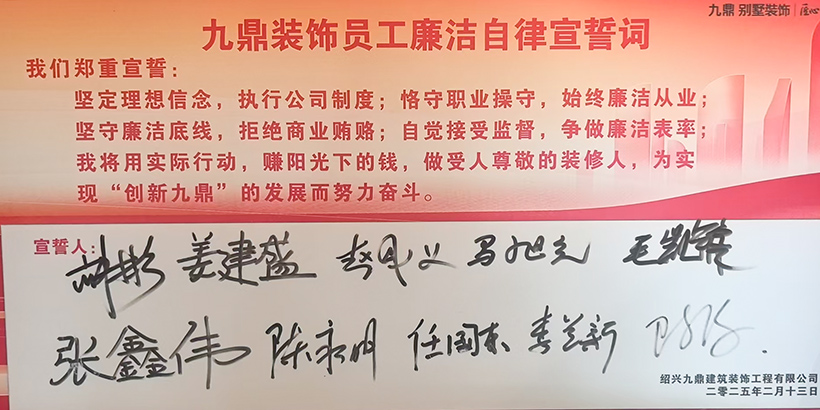 九鼎 别墅装饰 | 匠心
九鼎装饰员工廉洁自律宣誓词
我们郑重宣誓：
坚定理想信念，执行公司制度；恪守职业操守，始终廉洁从业；
坚守廉洁底线，拒绝商业贿赂；自觉接受监督，争做廉洁表率；
我将用实际行动，赚阳光下的钱，做受人尊敬的装修人，为实
现“创新九鼎”的发展而努力奋斗。
宣誓人：
姜建盛 马旭光
张鑫伟 陈永明 任国东 李兰新
绍兴九鼎建筑装饰工程有限公司
二零二五年二月十三日